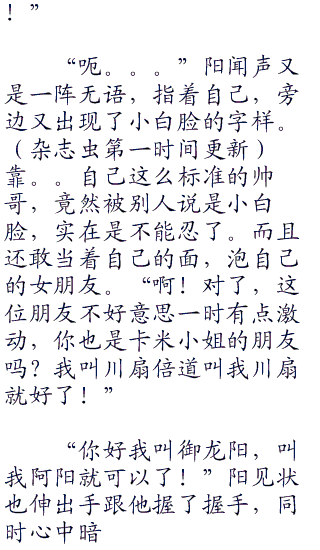 ！”
“呃。。。”阳闻声又
是一阵无语，指着自己，旁
边又出现了小白脸的字样。
（杂志虫第一时间更新）
靠。。自己这么标准的帅
哥，竟然被别人说是小白
脸，实在是不能忍了。而且
还敢当着自己的面，泡自己
的女朋友。“啊！对了，这
位朋友不好意思一时有点激
动，你也是卡米小姐的朋友
吗？我叫川扇倍道叫我川扇
就好了！”
“你好我叫御龙阳，叫
我阿阳就可以了！”阳见状
也伸出手跟他握了握手，同
时心中暗